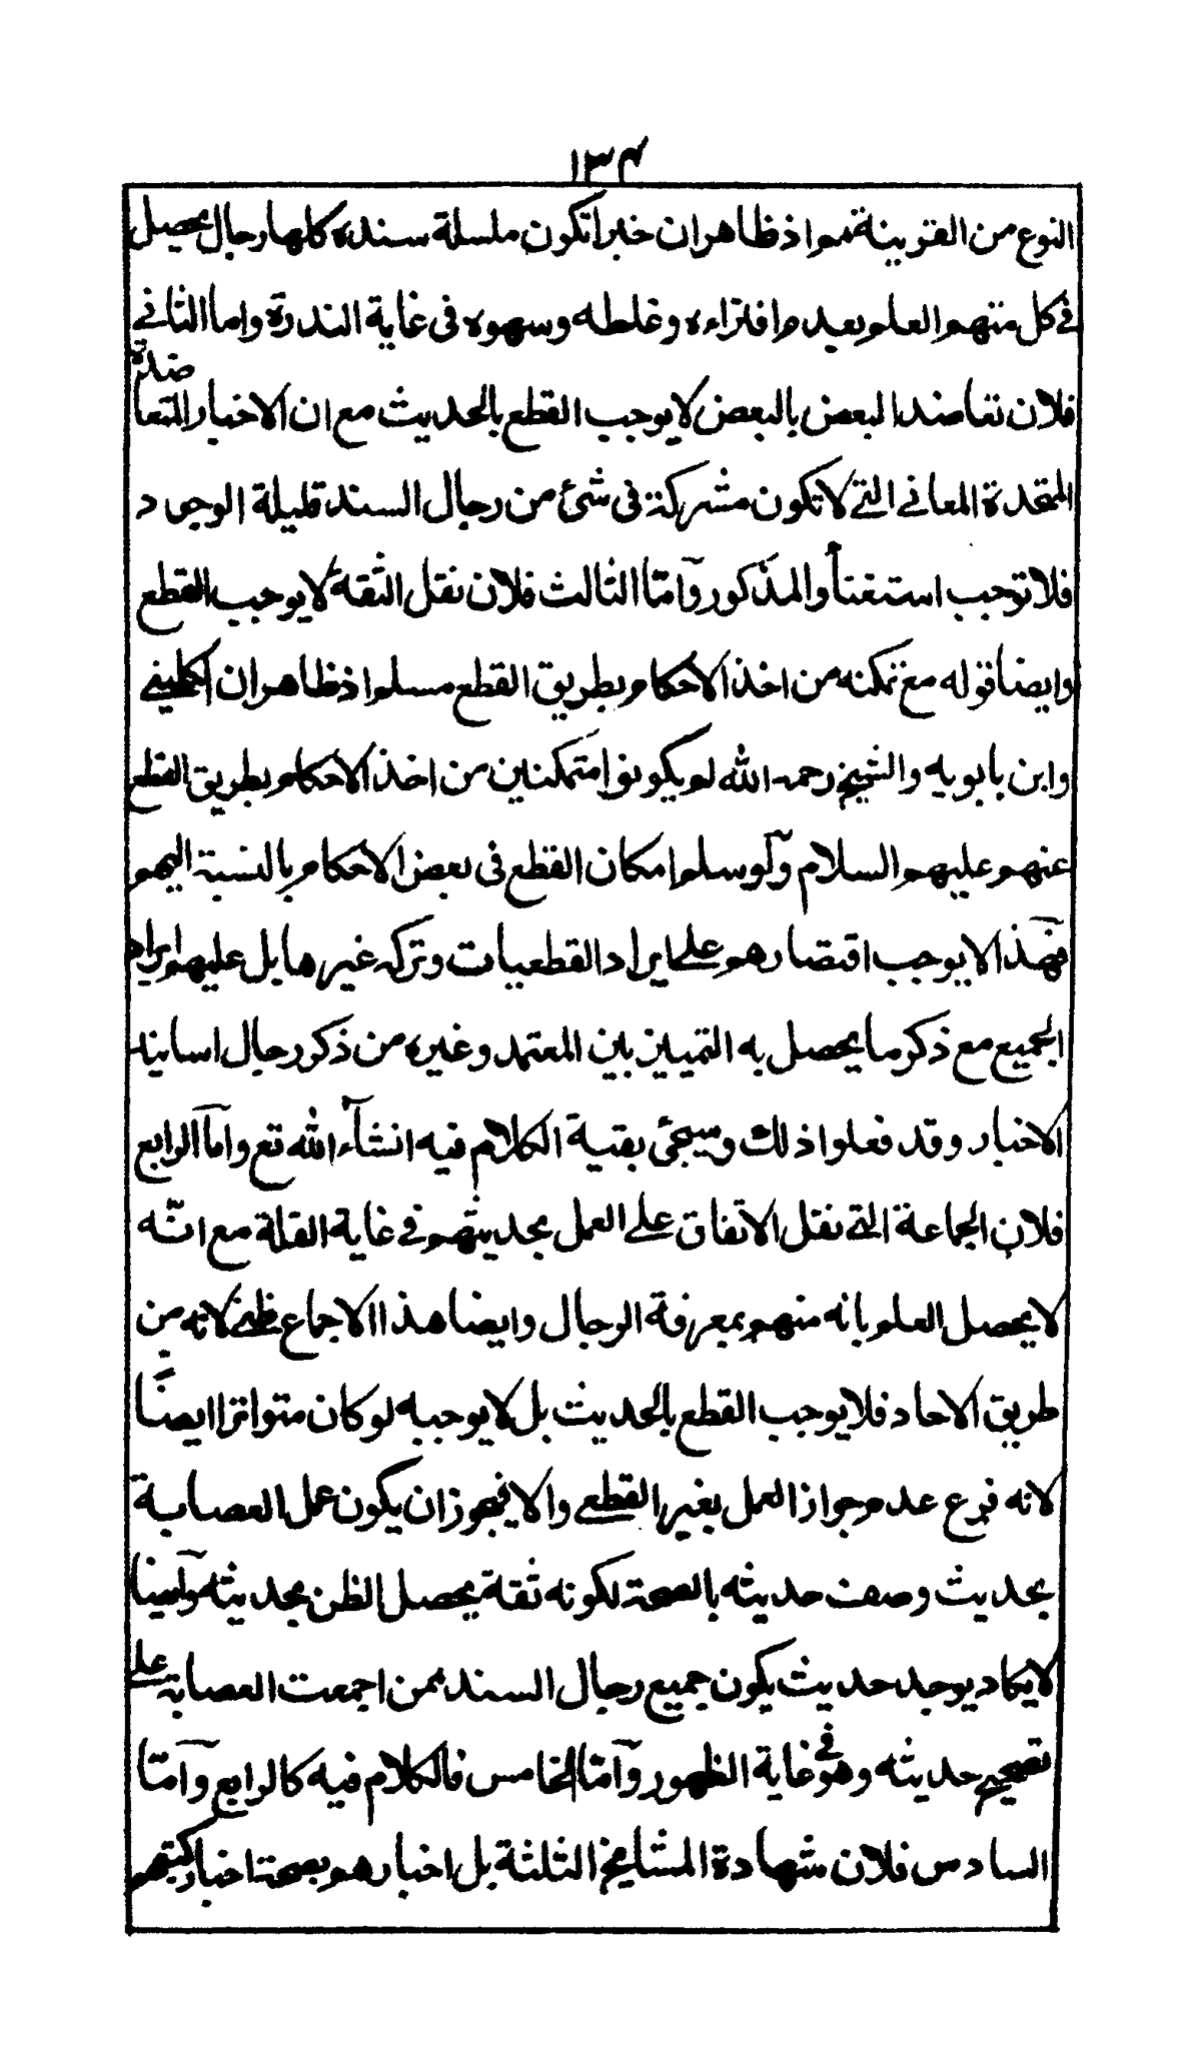 ١٣٤
النوع من القرينة ممنوع اذ ظاهر ان خبرا تكون سلسلة سنده كلها رجال يحصيل
في كل منهم العلم بعدم افترائه وغلطه وسهوه في غاية الندرة واما الثاني
فلان تعاضد البعض بالبعض لا يوجب القطع بالحديث مع ان الاخبار المتعاضدة
المتحدة المعاني التي لا تكون مشركة في شئ من رجال السند قليلة الوجود
فلا توجب استغناء والمذكور وآمّا الثالث فلان نقل الثقة لا يوجب القطع
وايضا قوله مع تمكنه من اخذ الاحكام بطريق القطع مسلم اذ ظاهر ان الكليني
وابن بابويه والشيخ رحمه الله لم يكونوا متمكنين من اخذ الاحكام بطريق القطع
عنهم عليهم السلام ولو سلم امكان القطع في بعض الاحكام بالنسبة اليهم
فهذا لا يوجب اقتصارهم على ايراد القطعيات وترك غيرها بل عليهم ايراد
الجميع مع ذكر ما يحصل به التمييز بين المعتمد وغيره من ذكر رجال اسانيد
الاخبار وقد فعلوا ذلك وسيجئ بقية الكلام فيه انشآء الله تع واما الرابع
فلان الجماعة التي نقل الاتفاق على العمل بحديثهم في غاية القلة مع انّه
لا يحصل العلم بانه منهم بمعرفة الرجال وايضا هذا الاجماع ظني لانه من
طريق الاحاد فلا يوجب القطع بالحديث بل لا يوجبه لو كان متواترا ايضًا
لانه فرع عدم جواز العمل بغير القطعي والا فيجوز ان يكون عمل العصابة
بحديث وصف حديثه بالصحة لكونه ثقة يحصل الظن بحديثه وايضا
لا يكاد يوجد حديث يكون جميع رجال السند ممن اجمعت العصابة على
تصحيح حديثه وهو في غاية الظهور وآمّا الخامس فالكلام فيه كالرابع وآمّا
السادس فلان شهادة المشايخ الثلثة بل اخبارهم بصحة اخبار كتبهم